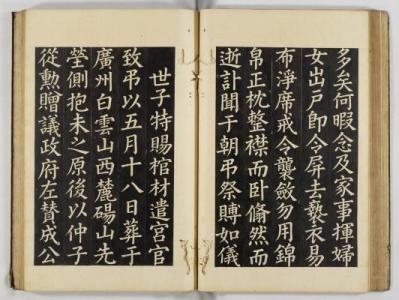 多矣何暇念及家事揮婦
女出戶卽令屏去褻衣易
布淨席戒令襲斂勿用錦
帛正枕整襟而卧翛然而
逝訃聞于朝弔祭賻如儀
世子特賜棺材遣宮官
致弔以五月十八日葬于
廣州白雲山西麓碭山先
塋側抱未之原後以仲子
從勲贈議政府左贊成公